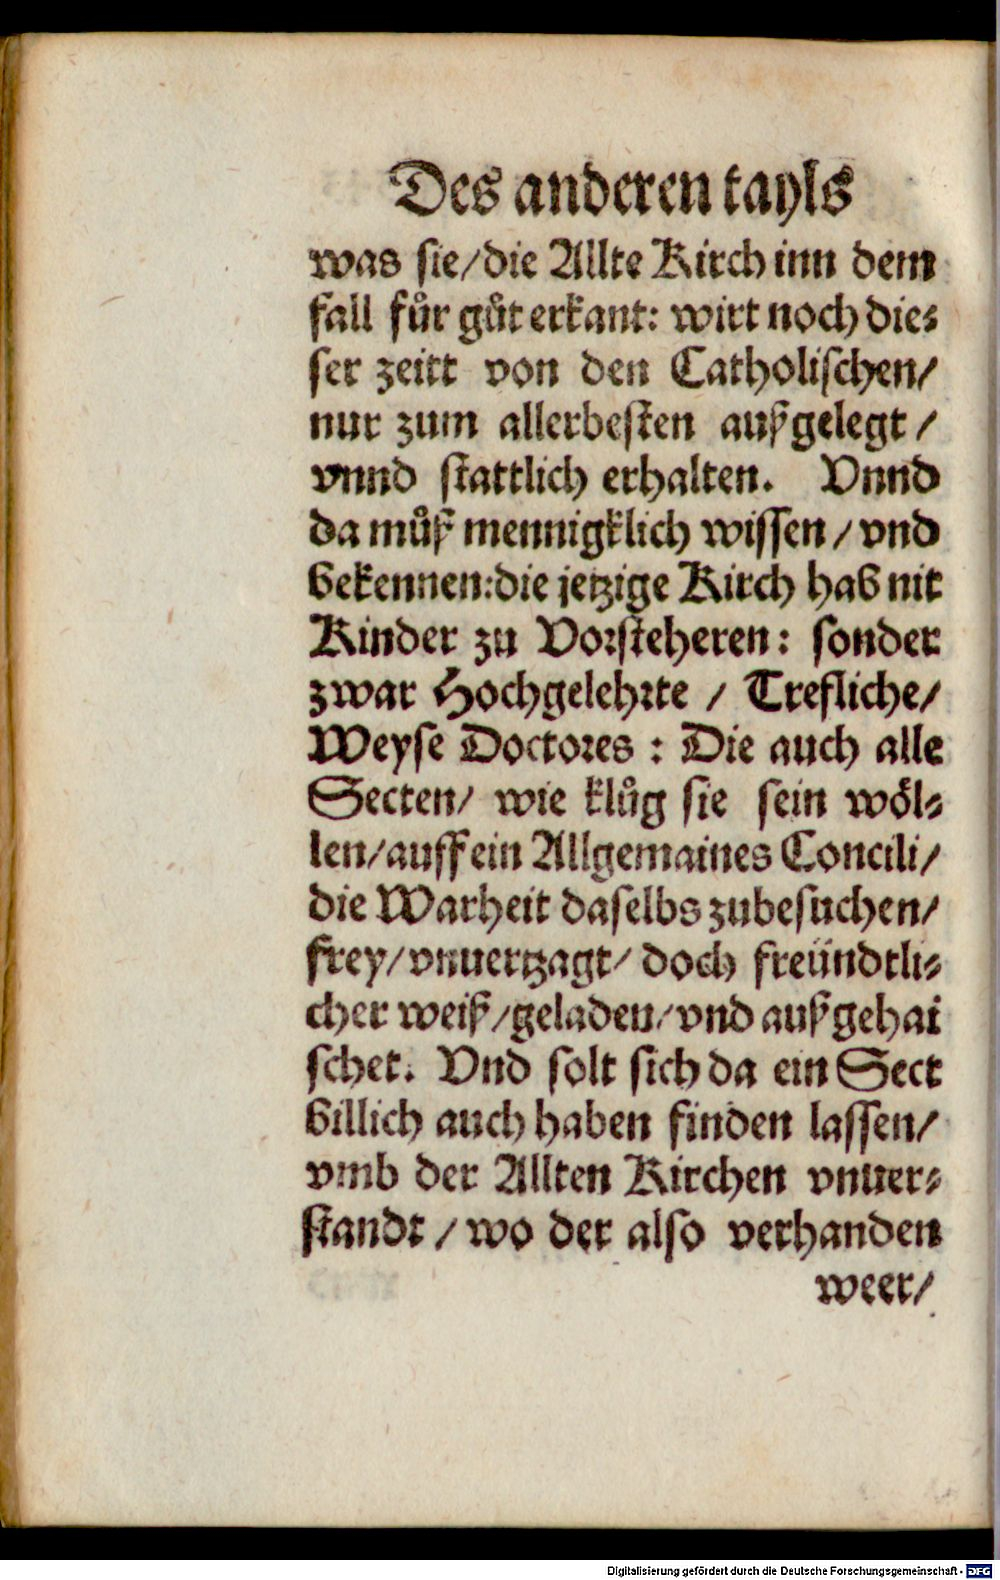 Des anderen tayls
was sie/die Allte Kirch inn dem
fall fůr gůt erkant: wirt noch die⸗
ser zeitt von den Catholischen/
nur zum allerbesten außgelegt/
vnnd stattlich erhalten. Vnnd
da můß mennigklich wissen/vnd
bekennen:die jetzige Kirch hab nit
Kinder zu Vorsteheren: sonder
zwar Hochgelehrte / Trefliche/
Weyse Doctores : Die auch alle
Secten/ wie klůg sie sein wöl⸗
len/auff ein Allgemaines Concili/
die Warheit daselbs zubesuchen/
frey/vnuertzagt/ doch freündtli⸗
cher weiß/geladen/vnd außgehai
schet. Vnd solt sich da ein Sect
billich auch haben finden lassen/
vmb der Allten Kirchen vnuer⸗
standt/wo der also verhanden
weer/
Digitalisierung gefördert durch die Deutsche Forschungsgemeinschaft - DFG